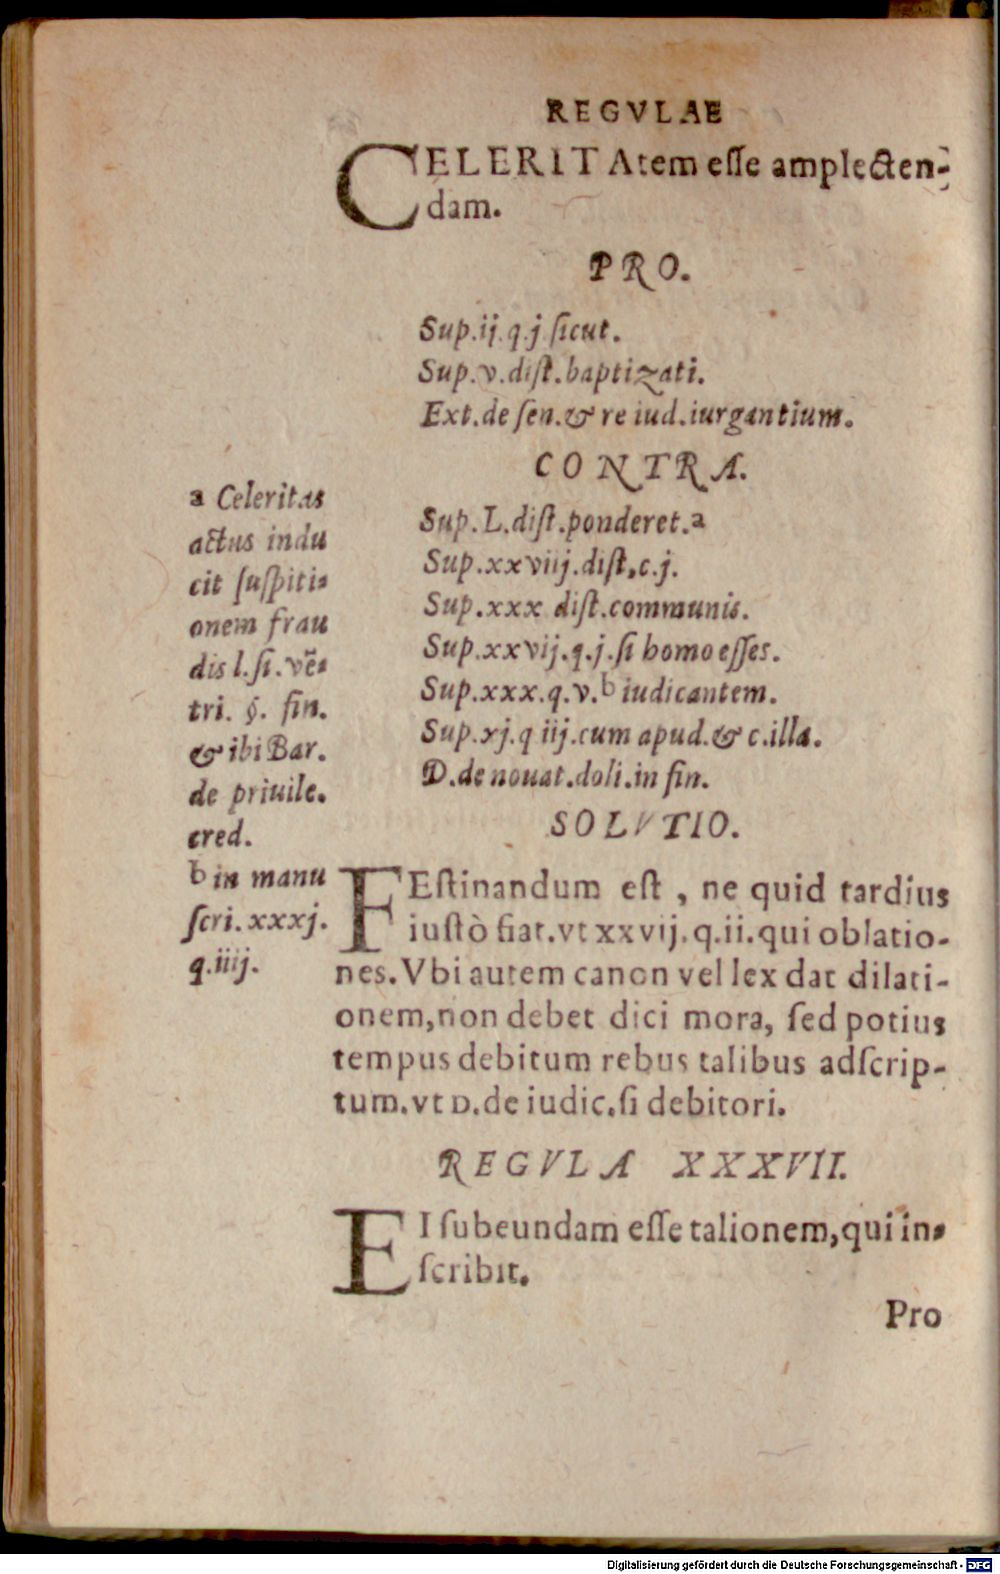 REGVLAE
CELERITAtem eſſe amplecten-
dam.
PRO.
Sup.ij.q.j ſicut.
Sup.v.diſt.baptizati.
Ext.de ſen.& re iud.iurgantium.
CONTRA.
Sup.L.diſt.ponderet.a
Sup.xxviij.diſt.c.j.
Sup.xxx diſt.communis.
Sup.xxvij.q.j.ſi homo eſſes.
Sup.xxx.q.v.b iudicantem.
Sup.xj.q iij.cum apud.& c.illa.
D.de nouat.doli.in fin.
a Celeritas
actus indu
cit ſuſpiti-
onem frau
dis l.ſi.vẽ-
tri. §. fin.
& ibi Bar.
de priuile.
cred.
b in manu
ſcri.xxxj.
q.iiij.
SOLVTIO.
FEſtinandum eſt , ne quid tardius
iuſtò fiat.vt xxvij.q.ii.qui oblatio-
nes.Vbi autem canon vel lex dat dilati-
onem,non debet dici mora, ſed potius
tempus debitum rebus talibus adſcrip-
tum.vt D.de iudic.ſi debitori.
REGVLA XXXVII.
EI ſubeundam eſſe talionem,qui in-
ſcribit.
Pro
Digitalisierung gefördert durch die Deutsche Forschungsgemeinschaft - DFG